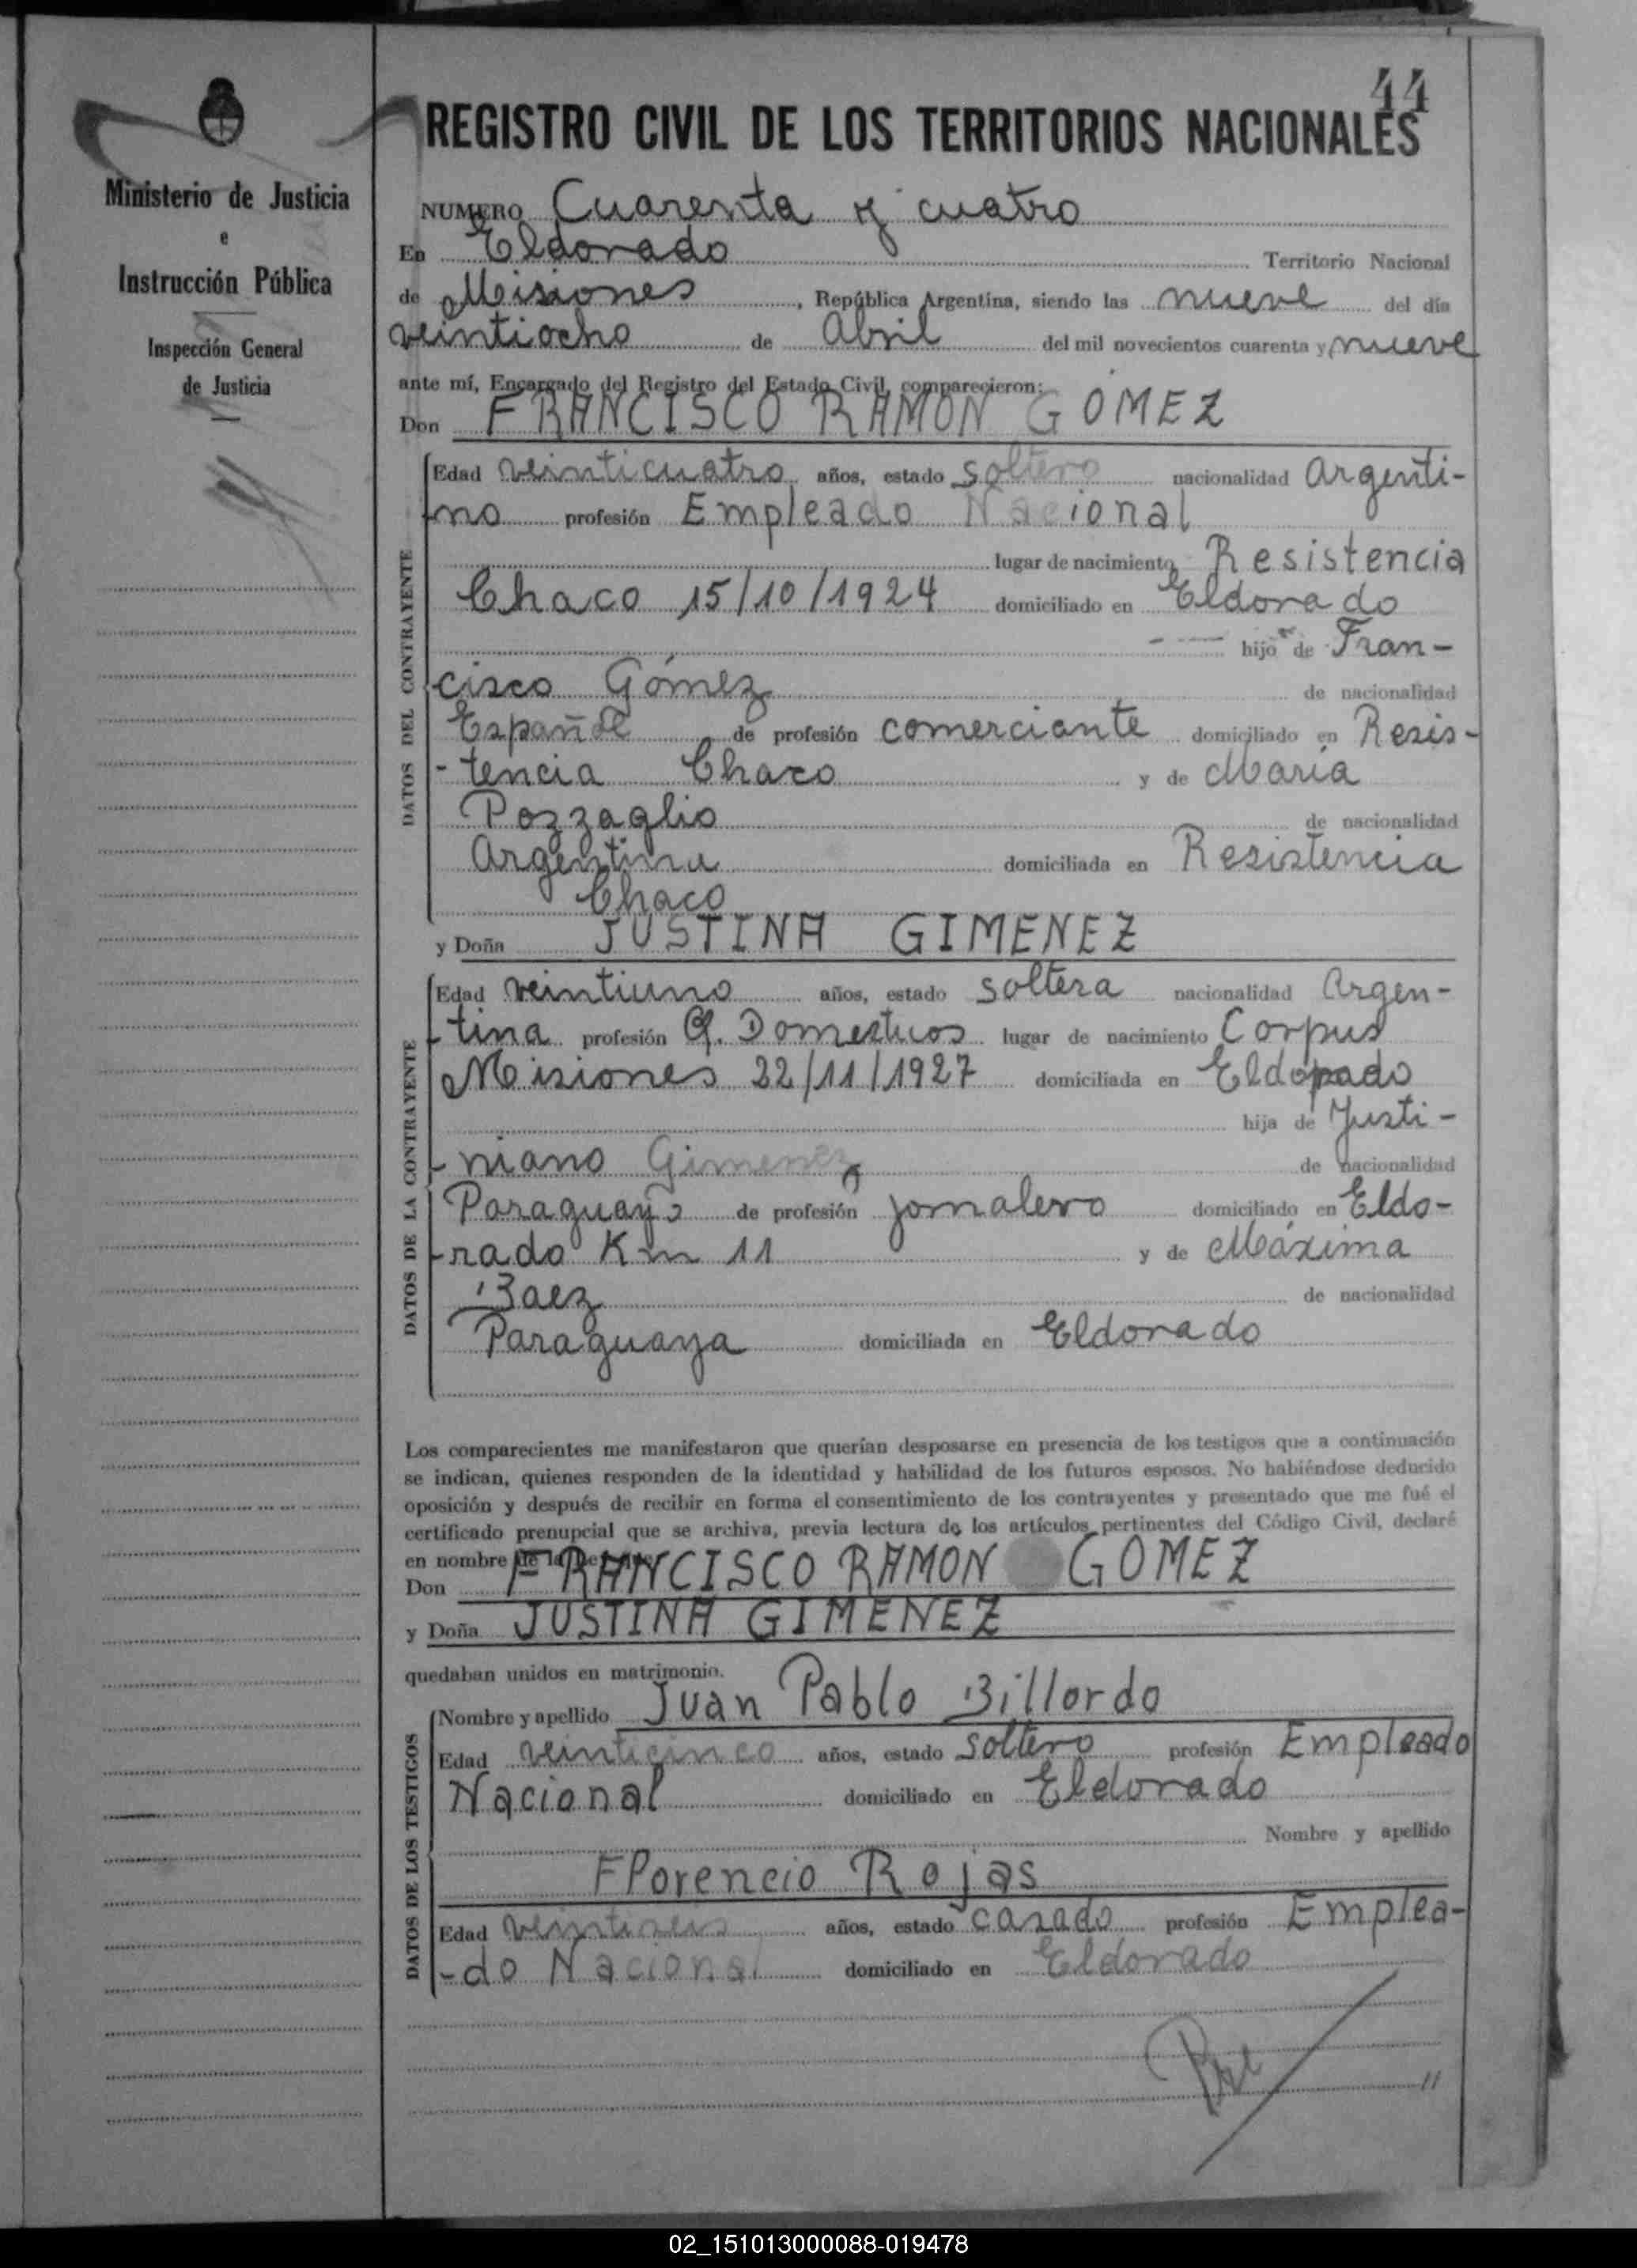 44
REGISTRO CIVIL DE LOS TERRITORIOS NACIONALES
Ministerio de Justicia
e
Instrucción Pública
Inspección General
de Justicia
NUMERO Cuarenta y cuatro
En Eldorado Territorio Nacional
de Misiones, República Argentina, siendo las nueve del día
veintiocho de Abril del mil novecientos cuarenta y nueve
ante mí, Encargado del Registro del Estado Civil, comparecieron:
Don FRANCISCO RAMON GOMEZ
DATOS DEL CONTRAYENTE
Edad veinticuatro años, estado soltero nacionalidad Argenti-
-no profesión Empleado Nacional
lugar de nacimiento Resistencia
Chaco 15/10/1924 domiciliado en Eldorado
hijo de Fran-
cisco Gómez de nacionalidad
Español de profesión comerciante domiciliado en Resis-
-tencia Chaco y de María
Pozzaglio de nacionalidad
Argentina domiciliada en Resistencia
Chaco
y Doña JUSTINA GIMENEZ
DATOS DE LA CONTRAYENTE
Edad veintiuno años, estado soltera nacionalidad Argen-
-tina profesión Q. Domesticos lugar de nacimiento Corpus
Misiones 22/11/1927 domiciliada en Eldorado
hija de Justi-
-niano Gimenez de nacionalidad
Paraguayo de profesión jornalero domiciliado en Eldo-
-rado Km 11 y de Máxima
Baez de nacionalidad
Paraguaya domiciliada en Eldorado
Los comparecientes me manifestaron que querían desposarse en presencia de los testigos que a continuación
se indican, quienes responden de la identidad y habilidad de los futuros esposos. No habiéndose deducido
oposición y después de recibir en forma el consentimiento de los contrayentes y presentado que me fué el
certificado prenupcial que se archiva, previa lectura de los artículos pertinentes del Código Civil, declaré
en nombre de la
Don FRANCISCO RAMON GOMEZ
y Doña JUSTINA GIMENEZ
quedaban unidos en matrimonio.
DATOS DE LOS TESTIGOS
Nombre y apellido Juan Pablo Billordo
Edad veinticinco años, estado soltero profesión Empleado
Nacional domiciliado en Eldorado
Nombre y apellido
Florencio Rojas
Edad veintiseis años, estado casado profesión Emplea-
-do Nacional domiciliado en Eldorado
02_151013000088-019478